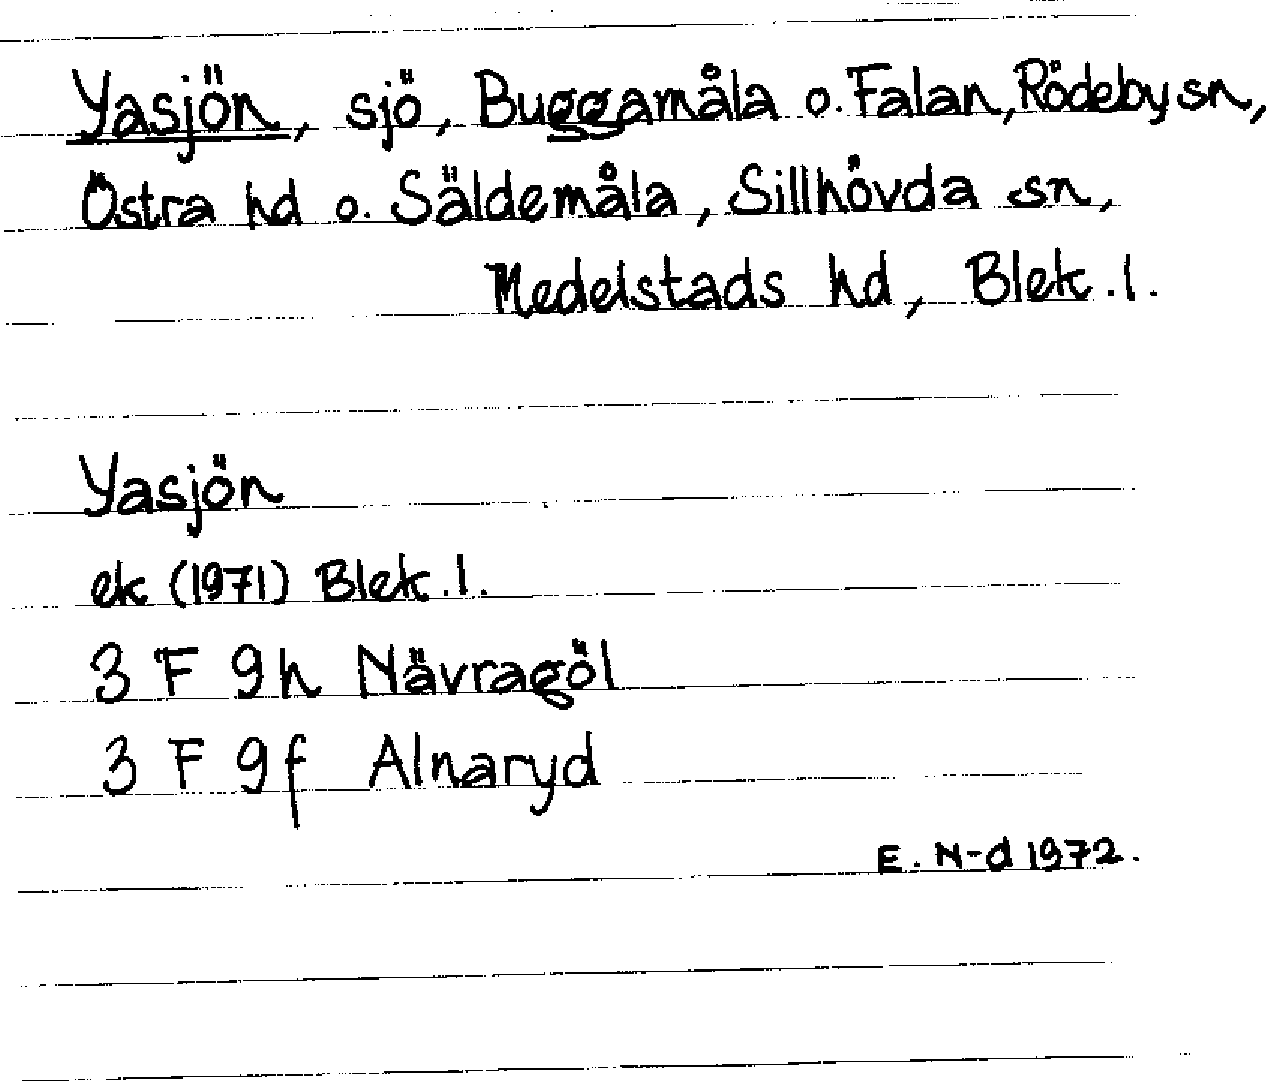 Yasjön, sjö, Buggamåla o. Falan, Rödeby sn,
Östra hd o. Säldemåla, Sillhövda sn,
Medelstads hd, Blek. l.
Yasjön
ek (1971) Blek. l.
3 F 9h Nävragöl
3 F 9f Alnaryd
E. N-d 1972.